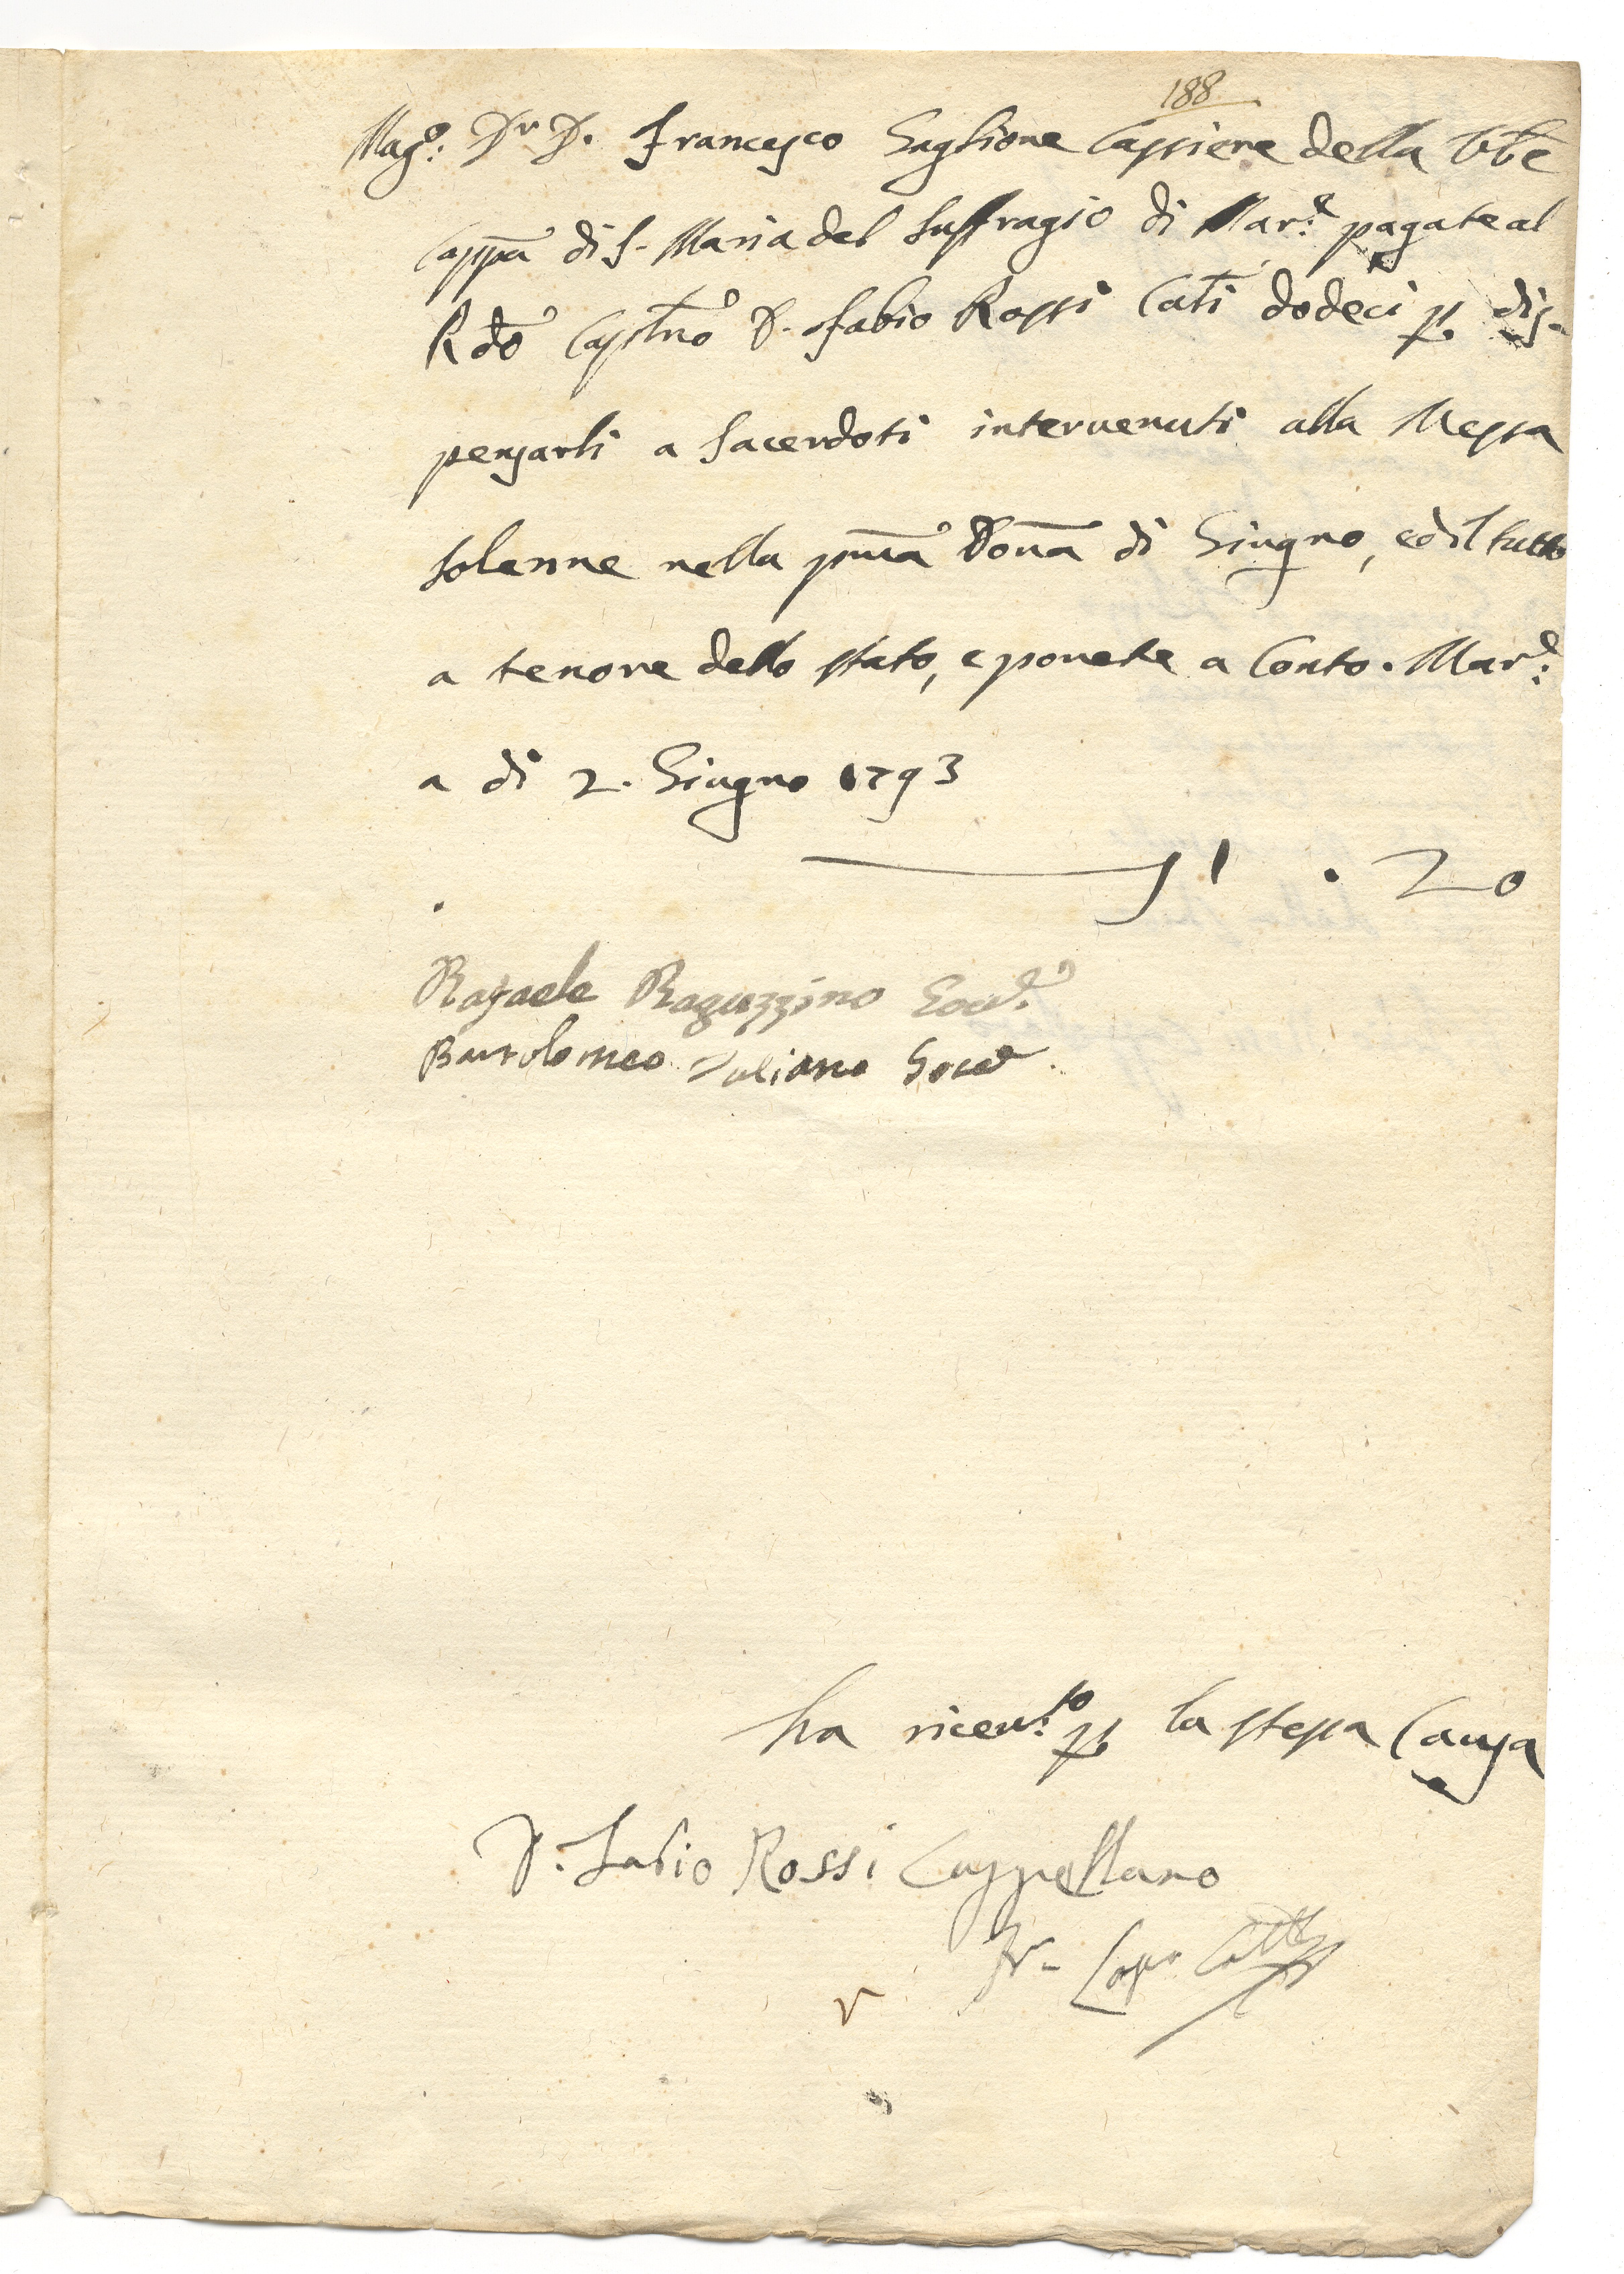 188
Mag:o Dr D. Francesco Saglione Cassiere della Vble
Cappa di S. Maria del Suffragio di Mar:e pagate al
Rdo Capllno D. Fabio Rossi Cati dodeci p dis-
pensarli a Sacerdoti intervenuti alla Messa
solenne nella pma Dona di Giugno, ed il tutto
a tenore dello stato, e ponete a Conto. Mar:e
a di 2. Giugno 1793
1 . 20
Rafaele Raguzzino
Bartolomeo Juliano
ha ricev:to p la stessa Causa
D. Fabio Rossi Cappellano